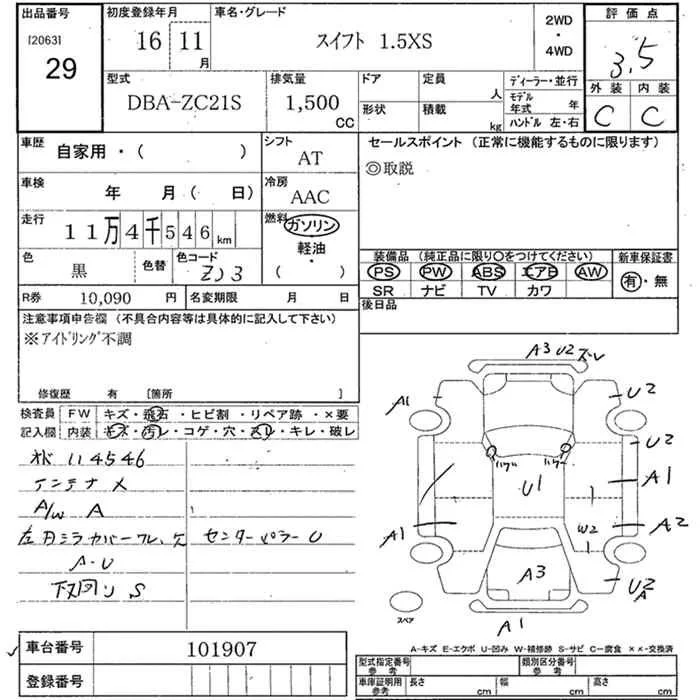 出品番号 初度登録年月 車名・グレード 2WD・4WD 評価点
[2063] 29 16 11月 スイフト 1.5XS 3.5
型式 排気量 ドア 定員 人 ディーラー・並行 外装 内装
DBA-ZC21S 1,500 CC 形状 積載 kg モデル年式 年 ハンドル 左・右 C C
車歴 自家用・( ) シフト AT セールスポイント (正常に機能するものに限ります)
◎取説
車検 年 月( 日) 冷房 AAC
走行 11万4千546km 燃料 ガソリン 軽油・( )
色 黒 色替 色コード ZJ3
装備品 (純正品に限り〇をつけてください) 新車保証書
PS PW ABS エアB AW 有・無
SR ナビ TV カワ
R券 10,090円 名変期限 月 日 後日品
注意事項申告欄 (不具合内容等は具体的に記入して下さい)
※アイドリング不調
修復歴 有 [箇所 ]
検査員 FW キズ・飛石・ヒビ割・リペア跡・×要
記入欄 内装 キズ・汚レ・コゲ・穴・スレ・キレ・破レ
114546
アンテナメ
A/W A
センターピラーU
A・U
下回リS
A3 U2 ズレ
A1 U2
U2
A1
U1
A1 W2 A2
A3 U2 A
A1
スペア
A-キズ E-エクボ U-凹み W-補修跡 S-サビ C-腐食 ××-交換済
車台番号 101907
登録番号
型式指定番号 参考 類別区分番号 参考
車庫証明用 参考 長さ cm 幅 cm 高さ cm